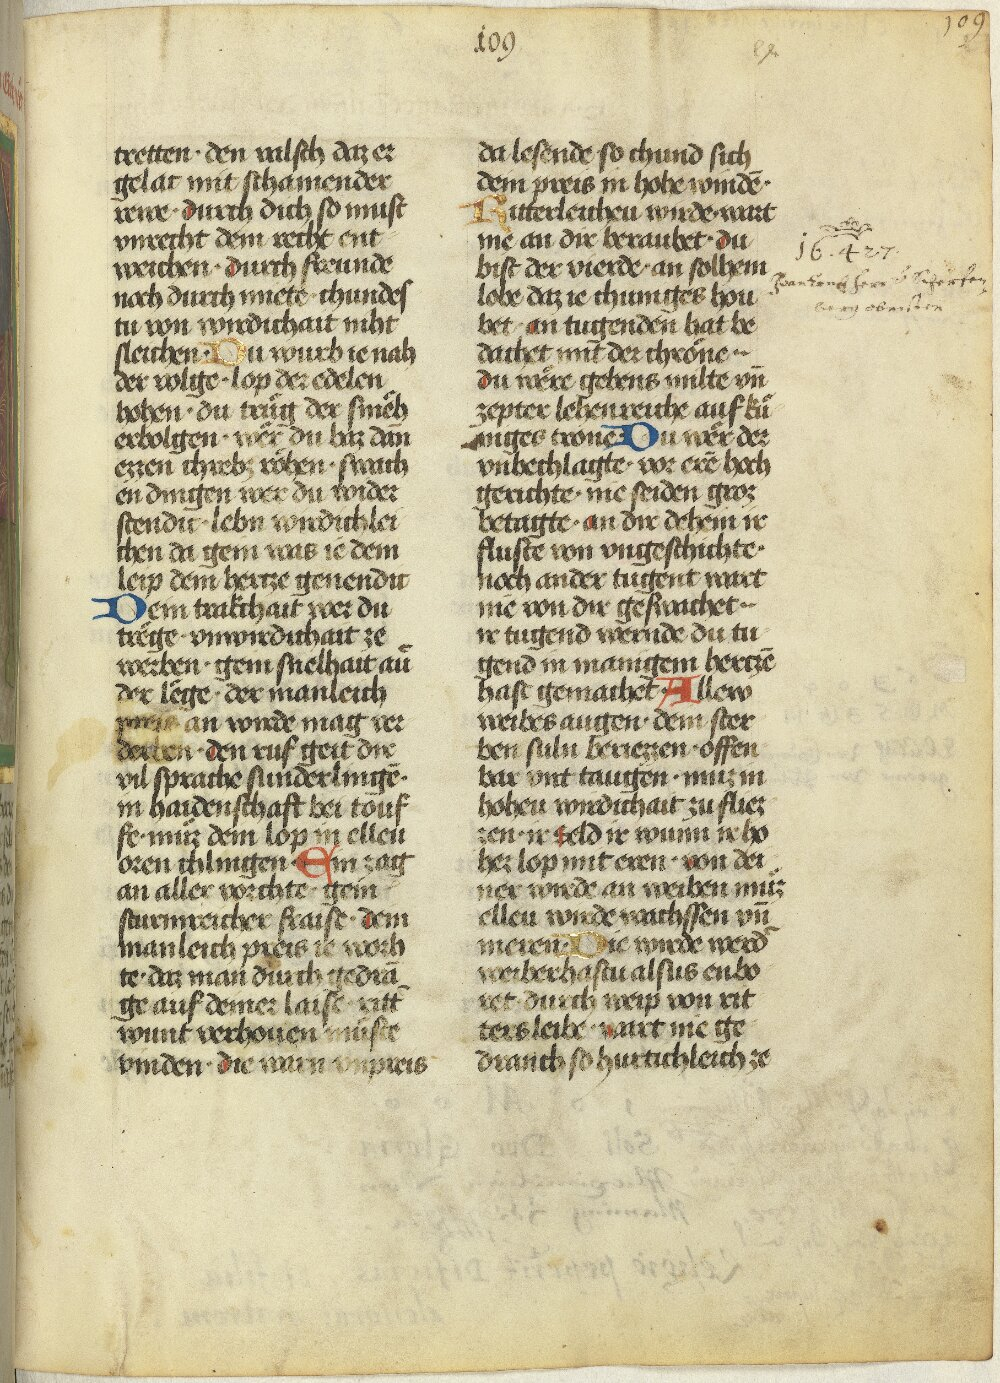 109
109
tretten · den valsch daz er
gelat mit schamender
rewe · durch dich so must
vnrecht dem recht ent
weichen · durch freunde
noch durch miete · chundes
tu von wirdichait niht
sleichen · Du wurb ie nah
der volge · lop der edelen
hohen · du trůg der smeh
erbolgen · wer du baz dan
erren chrebz rőhen · swach
en dingen wer du wider
stendic · lebn wirdichlei
chen da gein was ie dem
leip dem hertze genendic
Dem trakchait wer du
trege · vnwirdichait ze
werben · gein snelhait au
der lege · der manleich
preis an wirde mag ver
derben · den ruf geit dir
vil sprache sunderlingē ·
in haidenschaft bei touf
fe · můz dem lop in elleu
oren chlingen · Ein zag
an aller vorchte · gein
sturmreicher fraise · dem
manleich preis ie worh
te · daz man durch gedrā
ge auf deiner laise · ritt
wunt verhowen můste
vinden · die warn vnpreis
da lesende so chund sich
dem preis in hohe windē ·
Ritterleicheu wirde · wart
nie an dir beraubet · du
bist der vierde · an solhem
lobe daz ie chuniges hou
bet · an tugenden hat be
dachet mit der chrőne ··
du wére gebens milte vn̄
zepter lehenreiche auf ků
niges trone Du wer der
vnbechlagte · vor ere hoch
gerichte · nie seiden groz
betagte · an dir dehein ir
fluste von vngeschichte ·
noch ander tugent wart
nie von dir geswachet ··
ir tugend wernde du tu
gend in manigem hertzē
hast gemachet · Allew
weibes augen · dem ster
ben suln beriezzen · offen
bar vnt taugen · muz in
hoheu wirdichait zu fliez
zen · ir seld ir wunn ir ho
hez lop mit eren · von dei
ner wirde an weiben můz
elleu wirde wachssen vn̄
meren · Die wirde werd
weiber hastu alsus enbo
ret · durch weip von rit
ters leibe · wart nie ge
dranch so hurtichleich ze
16 · 427 ·